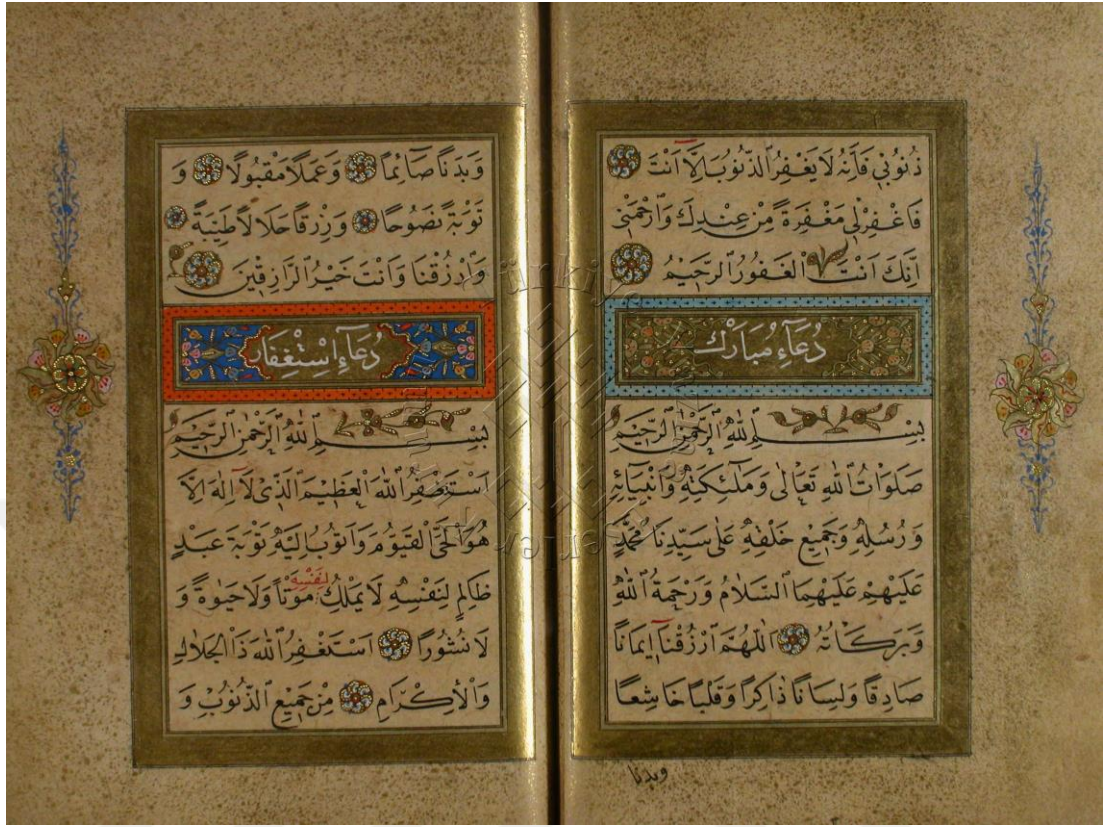 ذُنُوبِي فَاِنَّهُ لَا يَغْفِرُ الذُّنُوبَ اِلَّا اَنْتَ
فَاغْفِرْلِي مَغْفِرَةً مِنْ عِنْدِكَ وَارْحَمْنِي
اِنَّكَ اَنْتَ الْغَفُورُ الرَّحِيمُ
دُعَاءِ مُبَارَك
بِسْمِ اللهِ الرَّحْمٰنِ الرَّحِيمِ
صَلَوَاتُ اللهِ تَعَالٰى وَمَلٰئِكَتِهِ وَاَنْبِيَائِهِ
وَرُسُلِهِ وَجَمِيعِ خَلْقِهِ عَلٰى سَيِّدِنَا مُحَمَّدٍ
عَلَيْهِمْ عَلَيْهِمَا السَّلَامُ وَرَحْمَةُ اللهِ
وَبَرَكَاتُهُ اَللّٰهُمَّ ارْزُقْنَا اِيمَانًا
صَادِقًا وَلِسَانًا ذَاكِرًا وَقَلْبًا خَاشِعًا
وبدنا
وَبَدَنًا صَائِمًا وَعَمَلًا مَقْبُولًا وَ
تَوْبَةً نَصُوحًا وَرِزْقًا حَلَالًا طَيِّبَةً
وَارْزُقْنَا وَاَنْتَ خَيْرُ الرَّازِقِينَ
دُعَاءِ اِسْتِغْفَار
بِسْمِ اللهِ الرَّحْمٰنِ الرَّحِيمِ
اَسْتَغْفِرُ اللهَ الْعَظِيمَ الَّذِي لَا اِلٰهَ اِلَّا
هُوَ الْحَيَّ الْقَيُّومَ وَاَتُوبُ اِلَيْهِ تَوْبَةَ عَبْدٍ
ظَالِمٍ لِنَفْسِهِ لَا يَمْلِكُ لِنَفْسِهِ مَوْتًا وَلَا حَيٰوةً وَ
لَا نُشُورًا اَسْتَغْفِرُ اللهَ ذَا الْجَلَالِ
وَالْاِكْرَامِ مِنْ جَمِيعِ الذُّنُوبِ وَ